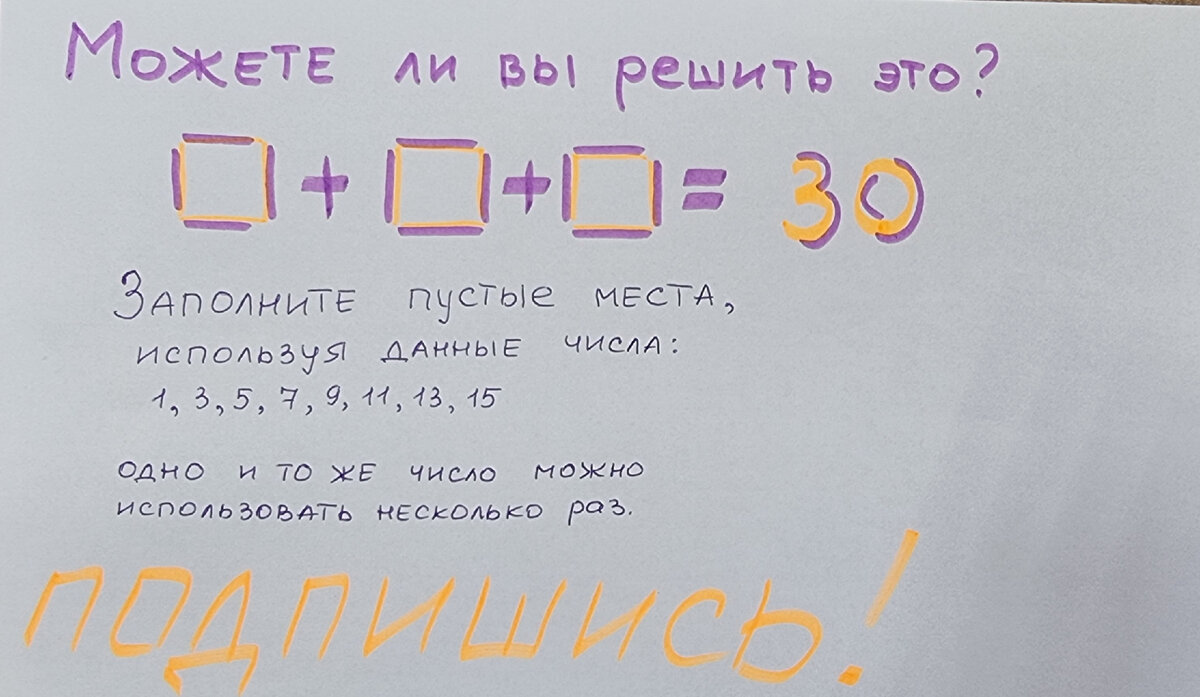 Можете ли вы решить это?
□ + □ + □ = 30
Заполните пустые места,
используя данные числа:
1, 3, 5, 7, 9, 11, 13, 15
одно и то же число можно
использовать несколько раз.
ПОДПИШИСЬ!